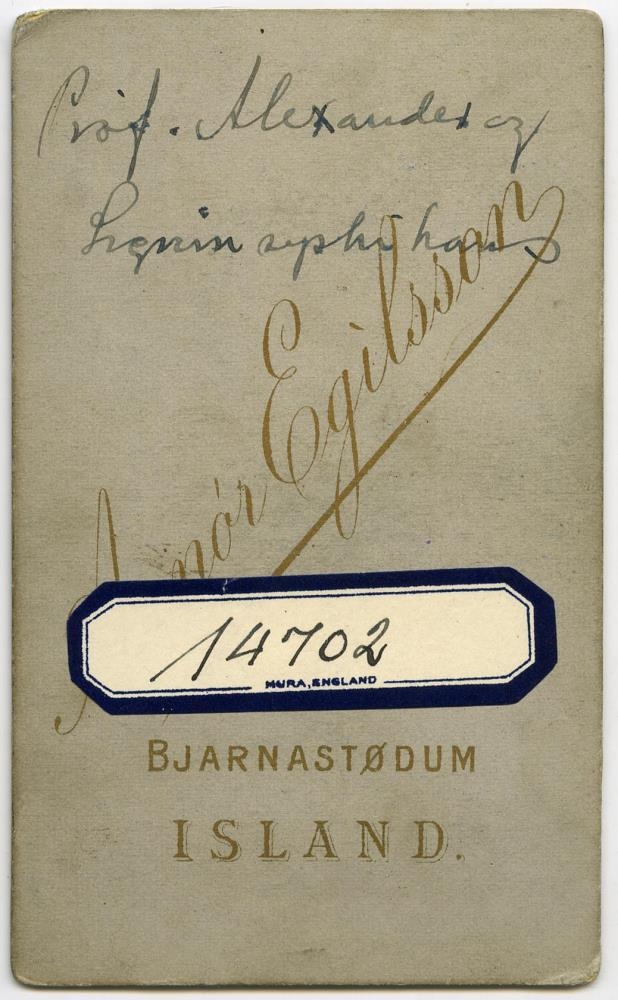 Prof. Alexander og
systir hans
Arnór Egilsson
14702
MURA, ENGLAND
BJARNASTØDUM
ISLAND.